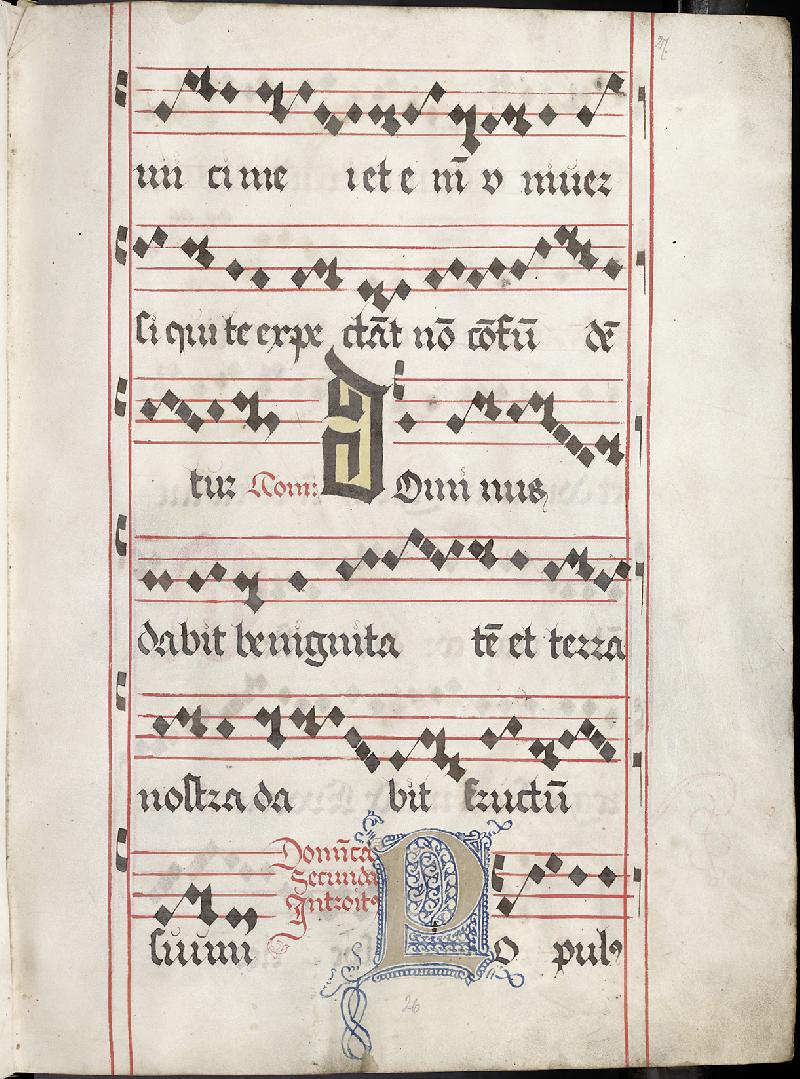 27
mi ci me i et e ni̅ v niuer
si qui te expe cta̅t no̅ co̅fu̅ de̅
tur Com: D Omi nus
dabit benignita te̅ et terra
nostra da bit fructu̅
suum Domi̅ca Secunda Introit⁹ P O pul⁹
26